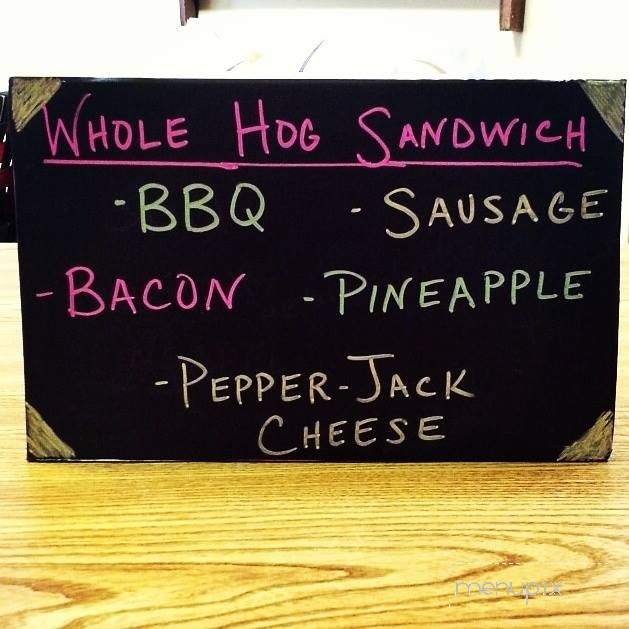 WHOLE HOG SANDWICH
-BBQ -SAUSAGE
-BACON -PINEAPPLE
-PEPPER-JACK
CHEESE
menupix